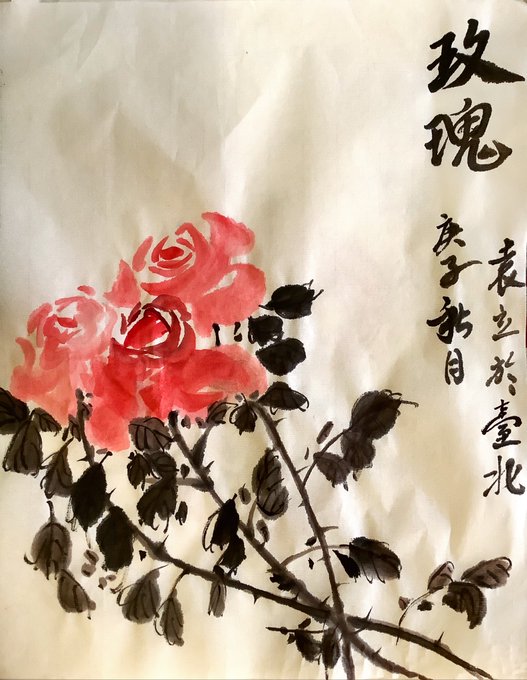 玫瑰
庚子秋月
袁立於臺北